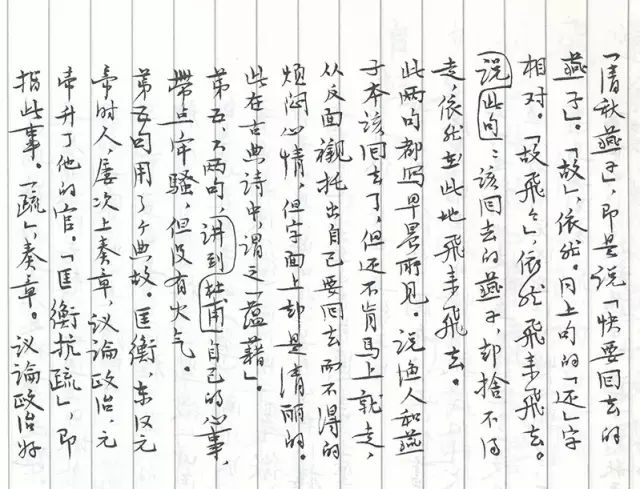 「清秋燕子」,即是说「快要回去的
燕子」。「故」,依然。同上句的「还」字
相对。「故飞々」,依然飞来飞去。
说此句:该回去的燕子,却捨不得
走,依然在此地飞来飞去。
此两句都写早晨所见。说渔人和燕
子本该回去了,但还不肯马上就走,
从反面襯托出自己要回去而不得的
烦闷心情,但字面上却是清丽的。
此在古典诗中,谓之「蕴藉」。
第五、六两句,讲到杜甫自己的心事,
带点牢骚,但没有火气。
第五句用了个典故。匡衡,东汉元
帝时人,屡次上奏章,议论政治,元
帝升了他的官。「匡衡抗疏」,即
指此事。「疏」,奏章。议论政治好